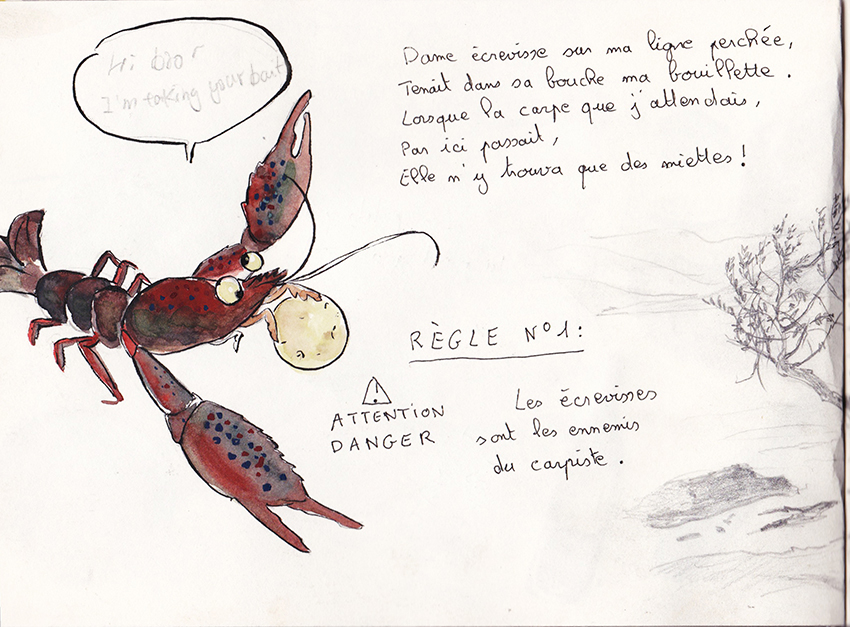 Hi bro !
I'm taking your bait
Dame écrevisse sur ma ligne perchée,
Tenait dans sa bouche ma bouillette.
Lorsque la carpe que j'attendais,
Par ici passait,
Elle n'y trouva que des miettes !
RÈGLE N°1:
ATTENTION
DANGER
Les écrevisses
sont les ennemis
du carpiste.